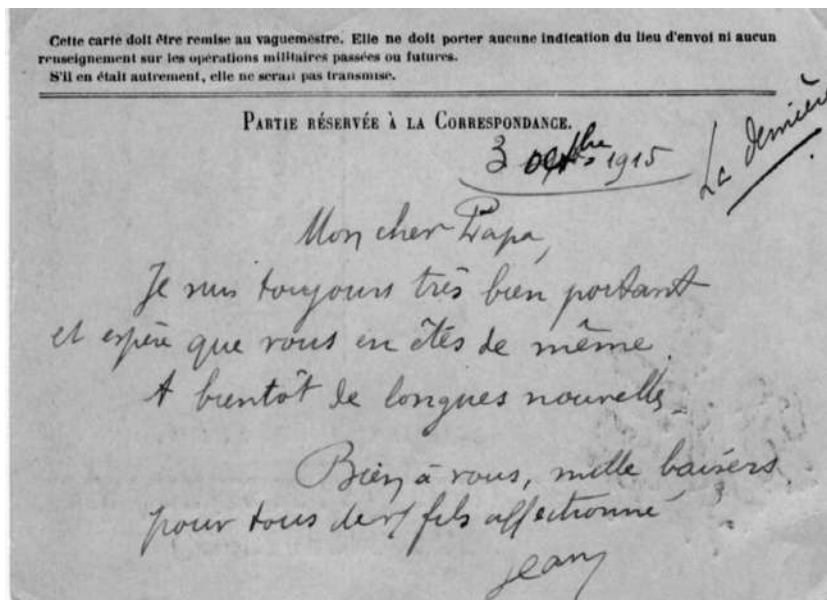 Cette carte doit être remise au vaguemestre. Elle ne doit porter aucune indication du lieu d'envoi ni aucun
renseignement sur les opérations militaires passées ou futures.
S'il en était autrement, elle ne serait pas transmise.
PARTIE RÉSERVÉE À LA CORRESPONDANCE.
3 octobre 1915
La dernière
Mon cher Papa,
Je suis toujours très bien portant
et espère que vous en êtes de même.
A bientôt de longues nouvelles.
Bien à vous, mille baisers
pour tous de fils affectionné
Jean